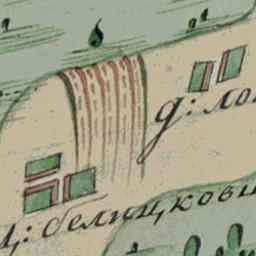 д: ло
ц: белицкови